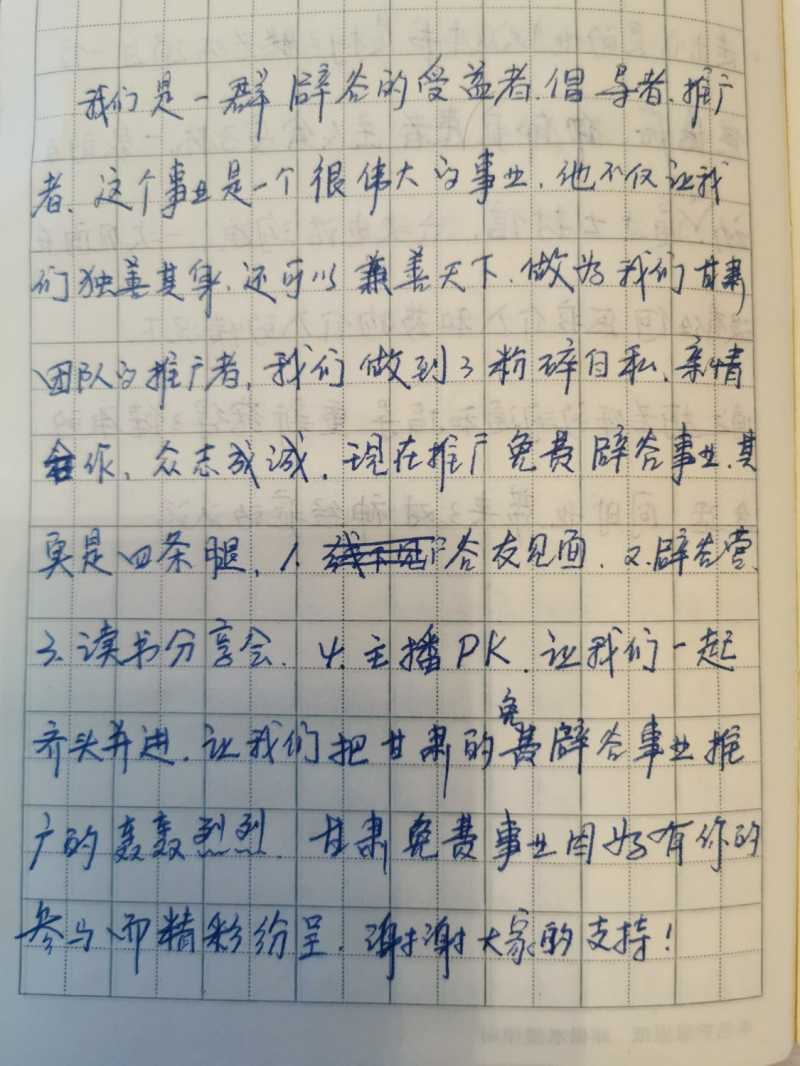 我们是一群辟谷的受益者、倡导者、推广
者、这个事业是一个很伟大的事业，他不仅让我
们独善其身，还可以兼善天下，做为我们甘肃
团队的推广者，我们做到了粉碎自私、亲情
合作、众志成诚，现在推广免费辟谷事业，其
实是四条腿，1、谷友见面、2、辟谷营、
3、读书分享会、4、主播PK，让我们一起
齐头并进，让我们把甘肃的免费辟谷事业推
广的轰轰烈烈，甘肃免费事业因为有你的
参与而精彩纷呈，谢谢大家的支持！